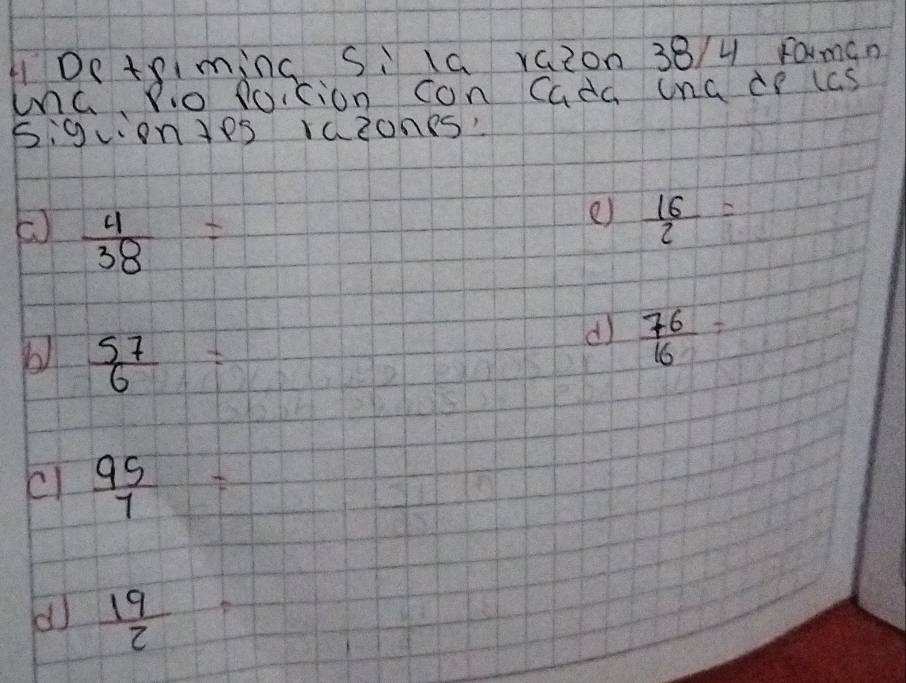 4 Determina si la razon 38/4 forman
una proporcion con cada una de las
siguientes razones:
a) 4/38 =
e) 16/2 =
b) 57/6 =
d) 76/16 =
c) 95/7 =
d) 19/2 =